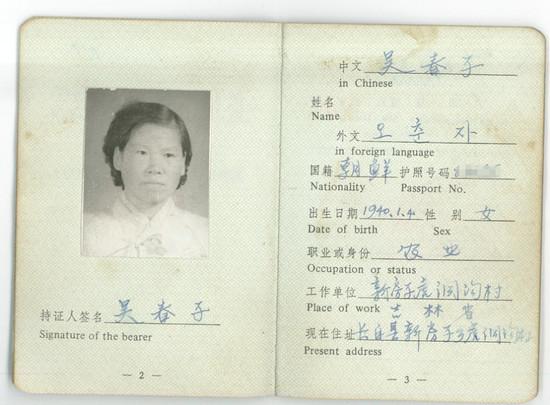 持证人签名 吴春子
Signature of the bearer
— 2 —
中文 吴春子
in Chinese
姓名
Name
外文 오춘자
in foreign language
国籍 朝鲜 护照号码
Nationality Passport No.
出生日期 1940.1.4. 性别 女
Date of birth Sex
职业或身份 农业
Occupation or status
工作单位 新房子 洞沟村
Place of work 吉林省
现在住址 长白县新房子
Present address
— 3 —